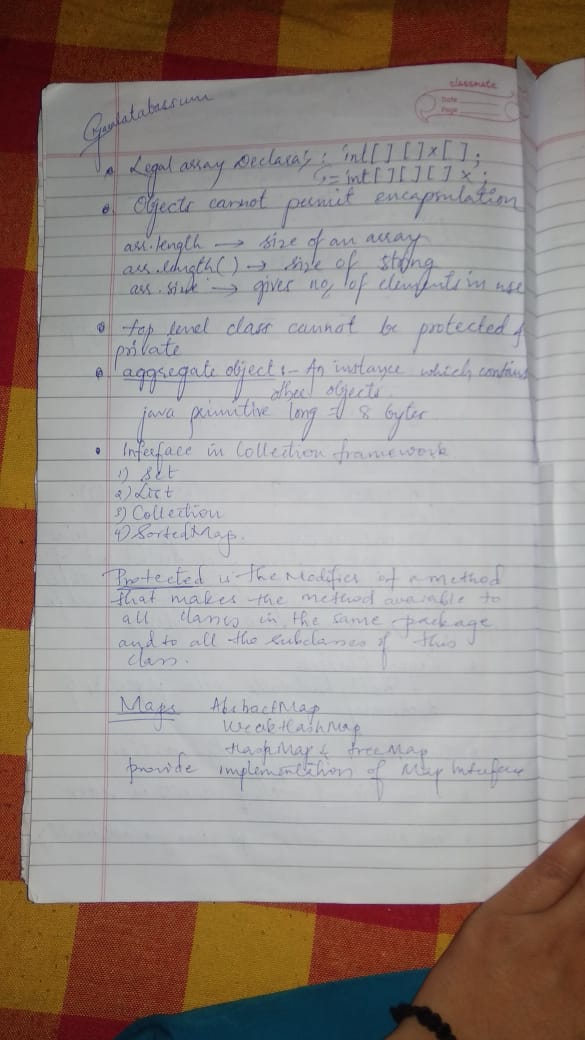 classmate
Date
Page
Legal array Declaraⁿ : int [ ] [ ] x [ ] ;
= int [ ] [ ] [ ] x ;
Objects cannot permit encapsulation
arr.length → size of an array
arr.length( ) → size of string
arr.size → gives no. of elements in use
top level class cannot be protected &
private
aggregate object :- An instance which contains
other objects.
java primitive long = 8 bytes
Interface in Collection framework
1) Set
2) List
3) Collection
4) SortedMap.
Protected is the Modifier of a method
that makes the method available to
all classes in the same package
and to all the subclasses of this
class.
Maps AbstractMap
WeakHashMap
HashMap & TreeMap
provide implementation of Map Interface